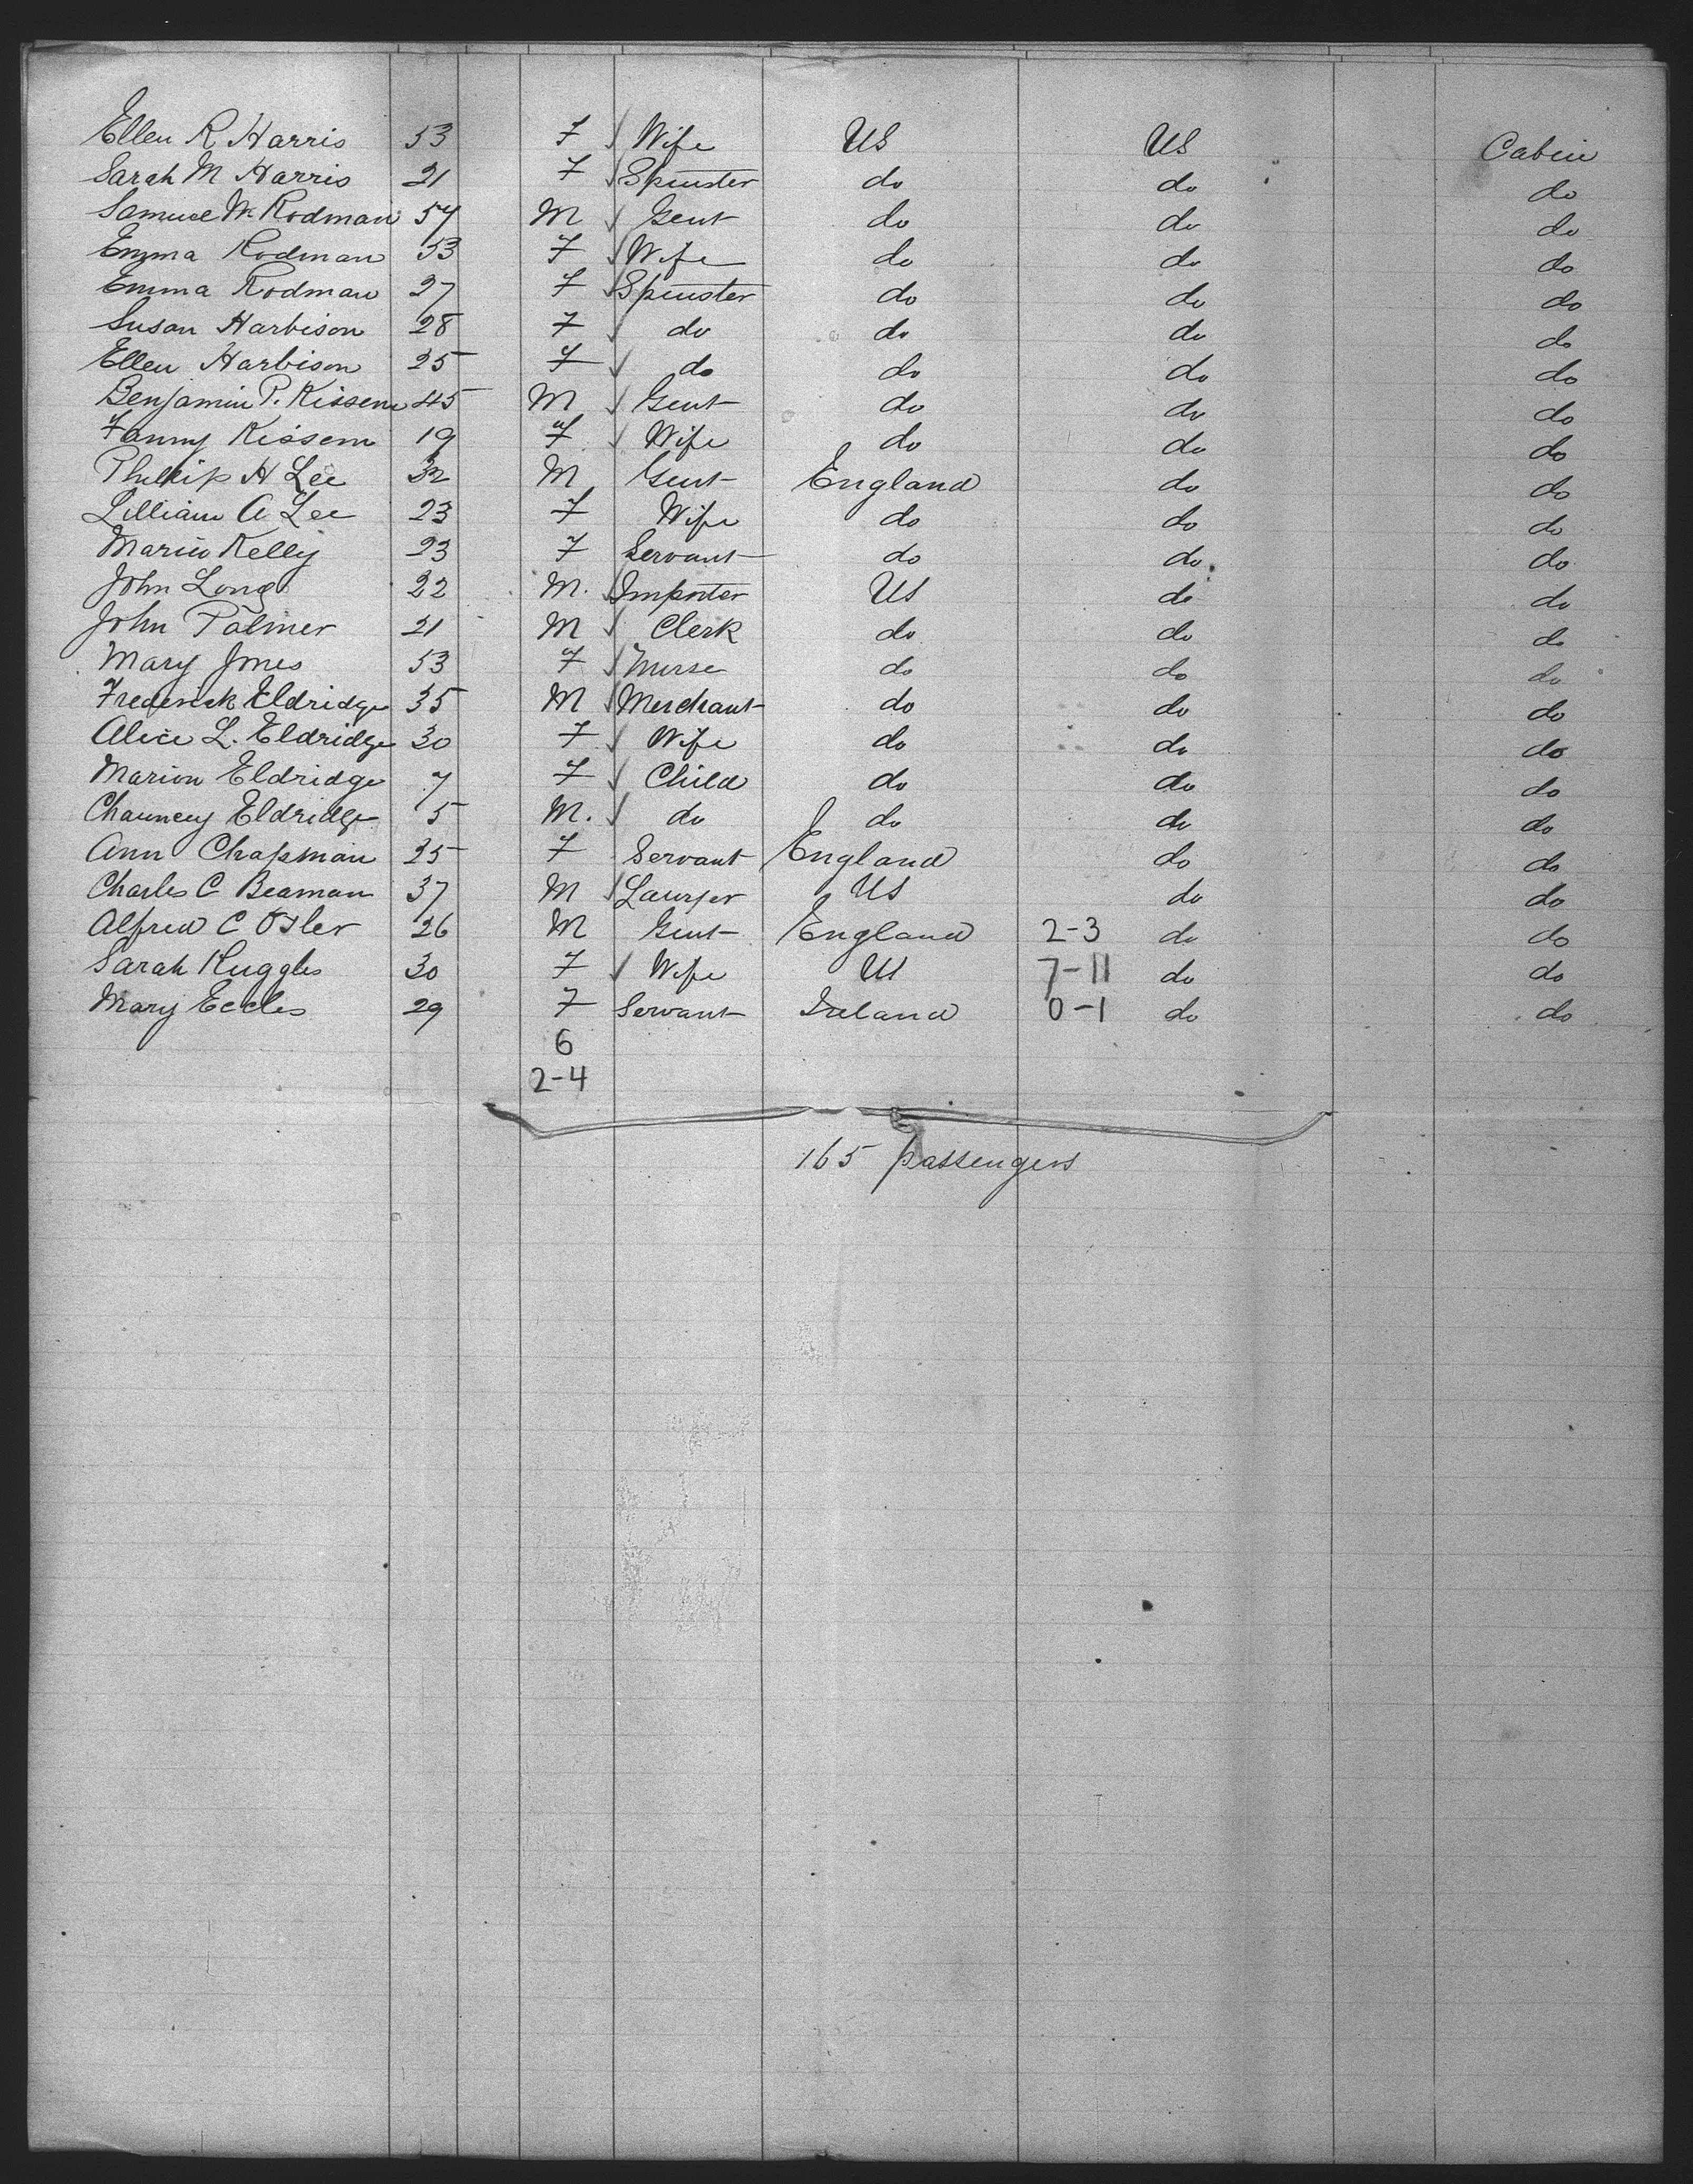 Ellen R Harris 53 F ✓ Wife US US Cabin
Sarah M Harris 21 F ✓ Spinster do do do
Samuel W. Rodman 54 M ✓ Gent do do do
Emma Rodman 53 F ✓ Wife do do do
Emma Rodman 27 F ✓ Spinster do do do
Susan Harbison 28 F ✓ do do do do
Ellen Harbison 25 F ✓ do do do do
Benjamin P. Kissem 45 M ✓ Gent do do do
Fanny Kissem 19 F ✓ Wife do do do
Phillip H Lee 32 M Gent England do do
Lilliam A Lee 23 F Wife do do do
Kelly 23 F Servant do do do
John Long 22 M. ✓ Importer US do do
John Palmer 21 M ✓ Clerk do do do
Mary Jones 53 F ✓ Nurse do do do
Frederick Eldridge 35 M ✓ Merchant do do do
Alice L. Eldridge 30 F ✓ Wife do do do
Marion Eldridge 7 F ✓ Child do do do
Chauncey Eldridge 5 M. ✓ do do do do
Ann Chapman 25 F Servant England do do
Charles C Beaman 37 M ✓ Lawyer US do do
Alfred C Osler 26 M Gent England 2-3 do do
Sarah Ruggles 30 F ✓ Wife US 7-11 do do
Mary Eccles 29 F Servant Ireland 0-1 do do
6
2-4
165 passengers